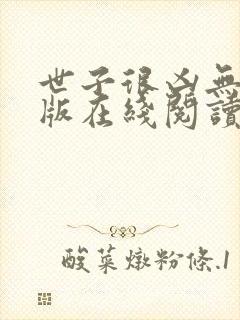 世子很凶無
版在綫閱讀
酸菜燉粉條.1